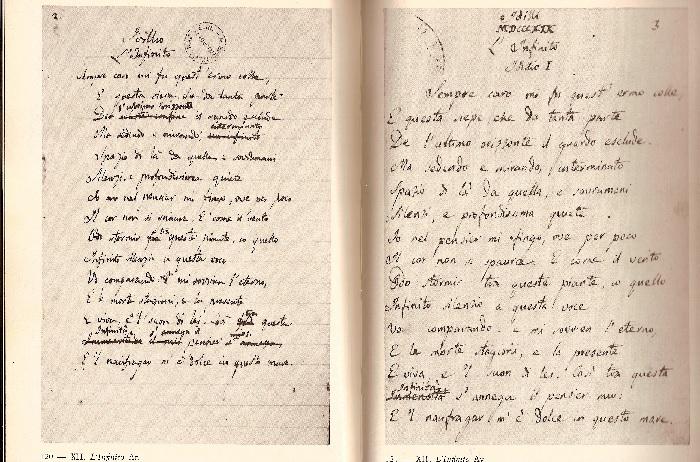 2
Idillio
L'Infinito
Sempre caro mi fu quest'ermo colle,
E questa siepe che da tanta parte
l'ultimo orizzonte
Del il guardo esclude.
interminato
Ma sedendo e mirando,
Spazio di là da quella, e sovrumani
Silenzi, e profondissima quiete
Io nel pensier mi fingo, ove per poco
Il cor non si spaura. E come il vento
Odo stormir tra queste piante, io quello
Infinito silenzio a questa voce
Vo comparando: e mi sovvien l'eterno,
E le morte stagioni, e la presente
E viva, e 'l suon di lei. Così questa
E 'l naufragar m'è dolce in questo mare.
XII. L'Infinito Ar.
3
Idilli
MDCCCXIX
L'Infinito
Idillio I
Sempre caro mi fu quest'ermo colle,
E questa siepe che da tanta parte
De l'ultimo orizzonte il guardo esclude.
Ma sedendo e mirando, l'interminato
Spazio di là da quella, e sovrumani
Silenzi, e profondissima quiete
Io nel pensier mi fingo, ove per poco
Il cor non si spaura. E come il vento
Odo stormir tra queste piante, io quello
Infinito silenzio a questa voce
Vo comparando: e mi sovvien l'eterno,
E le morte stagioni, e la presente
E viva, e 'l suon di lei. Così tra questa
Infinità
Immensità s'annega il pensier mio:
E 'l naufragar m'è dolce in questo mare.
XII. L'Infinito Av.